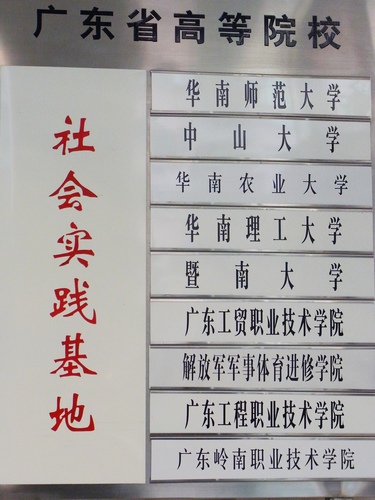 广东省高等院校
社会实践基地
华南师范大学
中山大学
华南农业大学
华南理工大学
暨南大学
广东工贸职业技术学院
解放军军事体育进修学院
广东工程职业技术学院
广东岭南职业技术学院